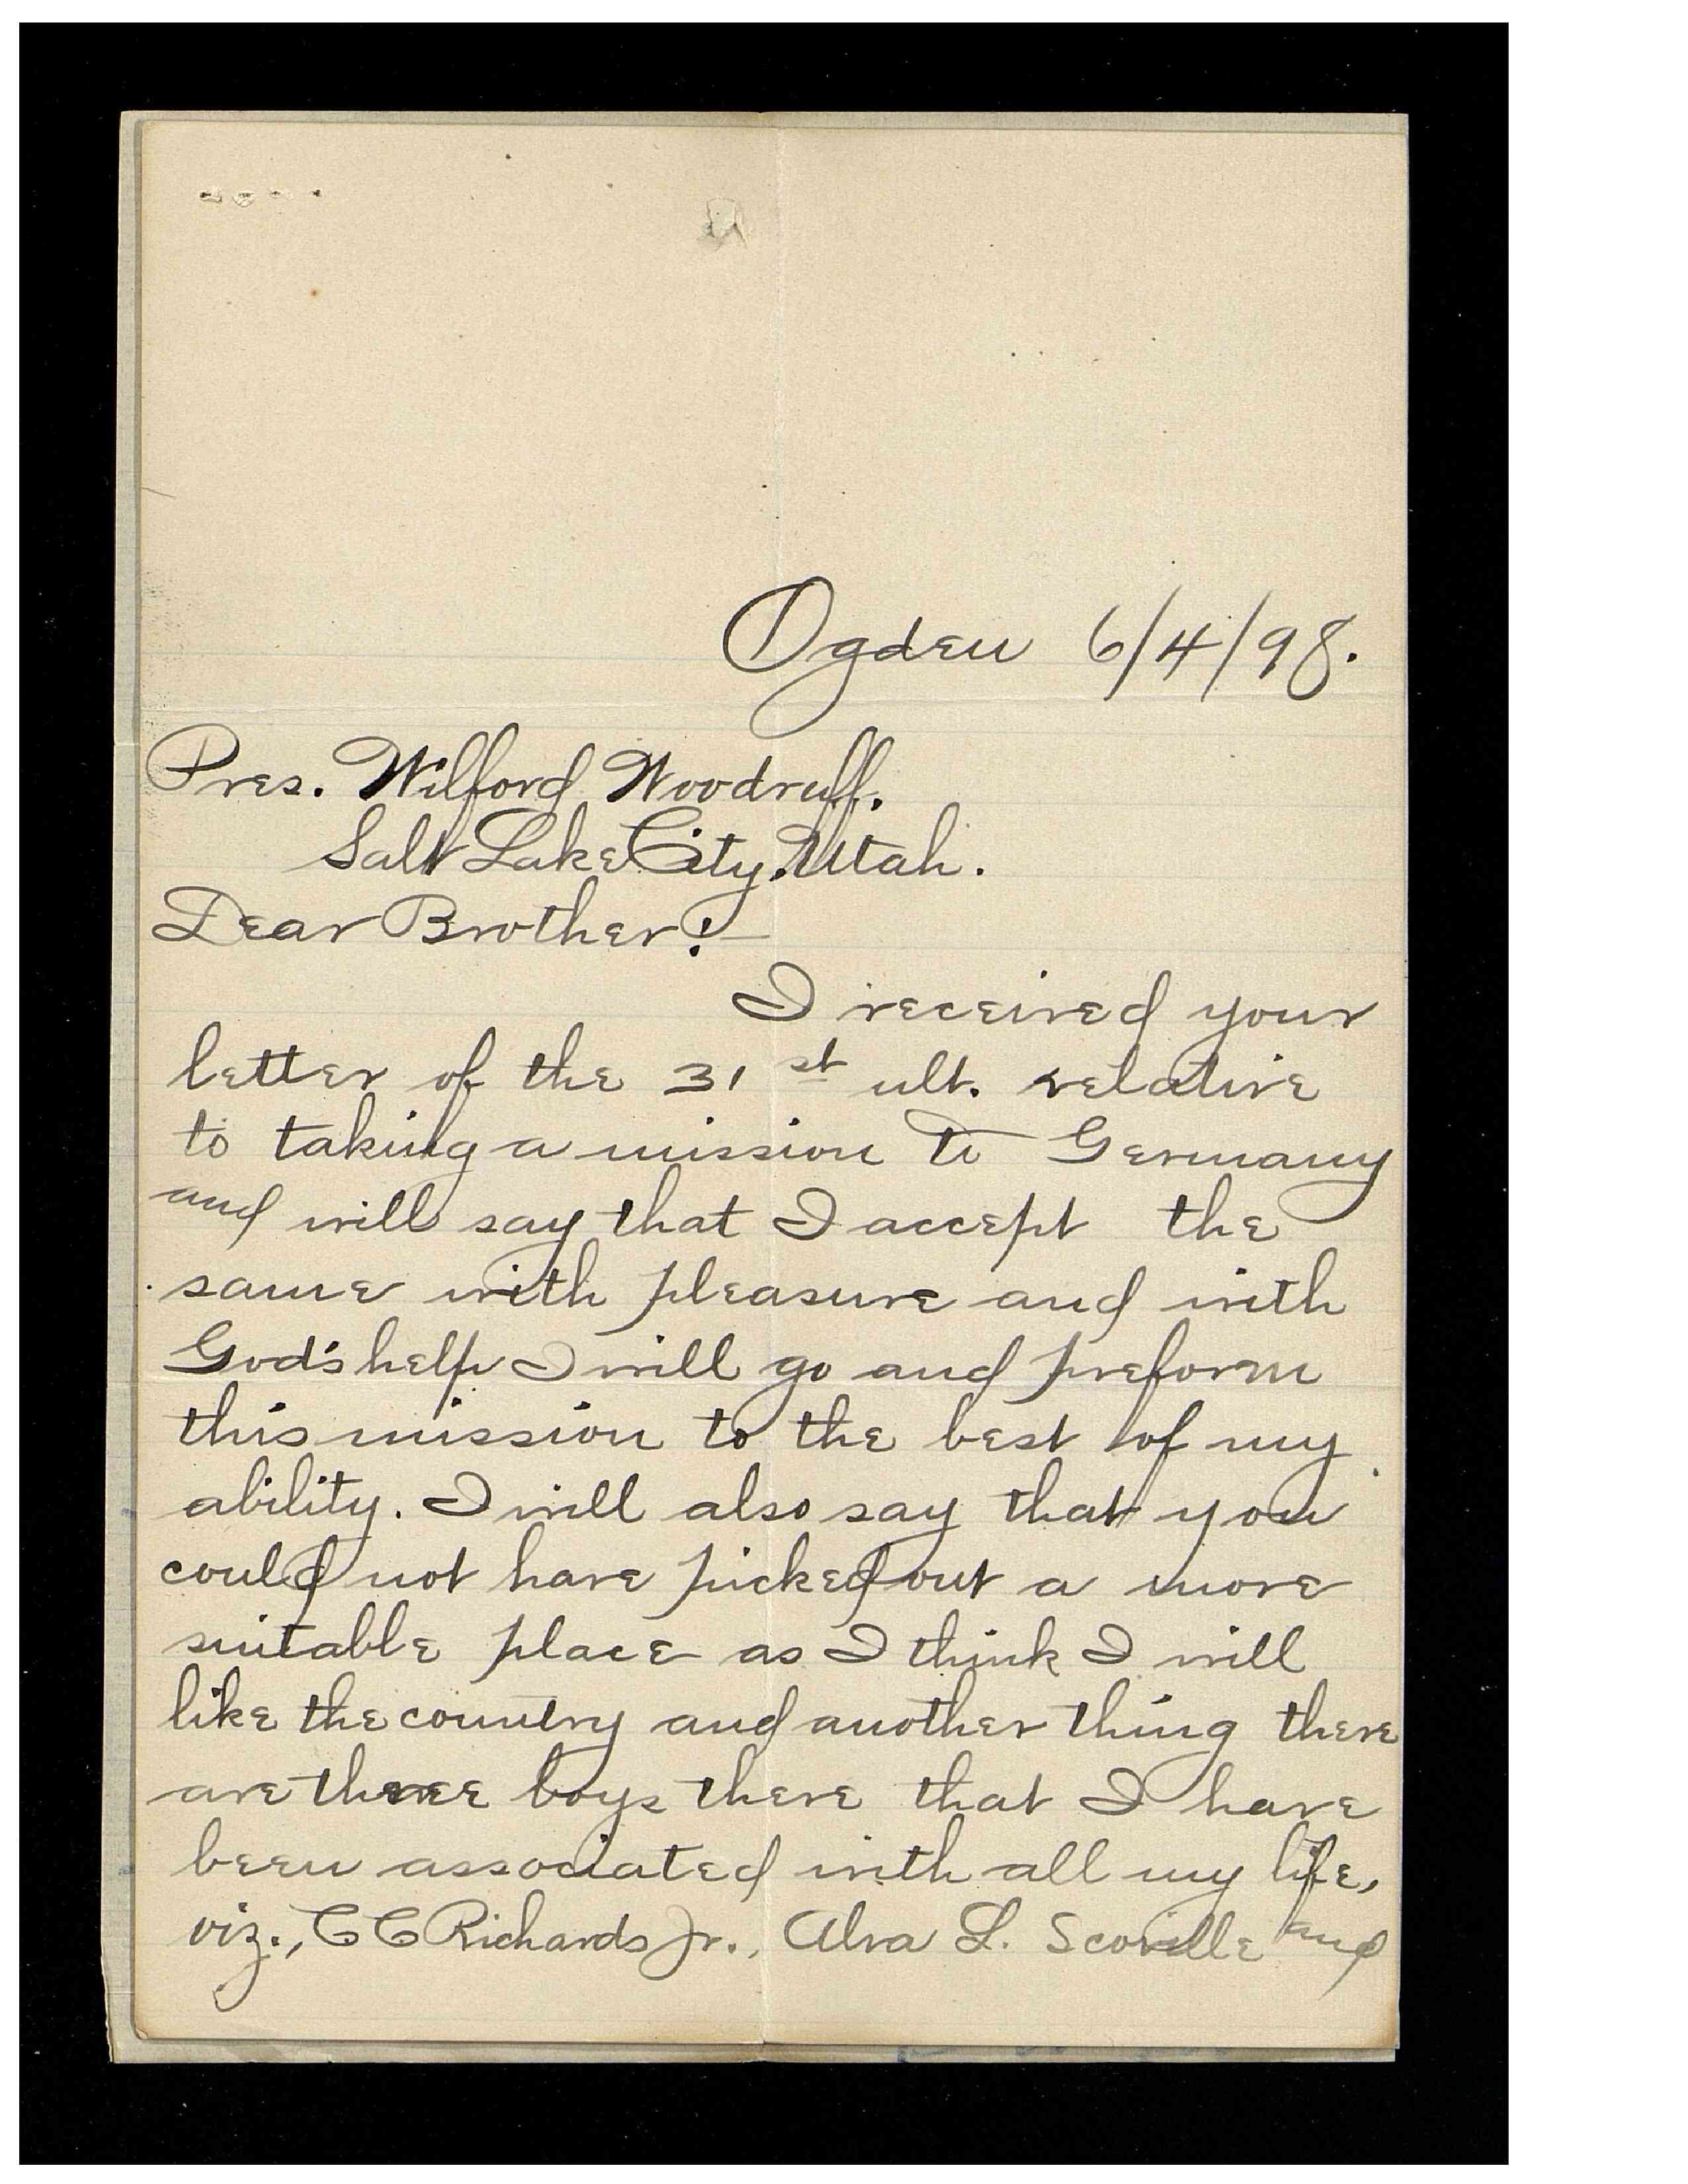 Ogden 6/4/98.
Pres. Wilford Woodruff.
Salt Lake City. Utah.
Dear Brother:—
I received your
letter of the 31st ult. relative
to taking a mission to Germany
and will say that I accept the
same with pleasure and with
God's help I will go and preform
this mission to the best of my
ability. I will also say that you
could not have picked out a more
suitable place as I think I will
like the country and another thing there
are three boys there that I have
been associated with all my life,
viz., C C Richards Jr., Alva L. Scoville and